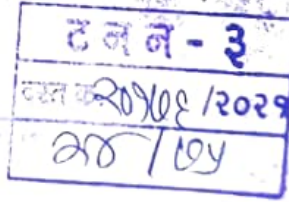 ट न न - ३
दस्त क्र २०१७६ /२०२१
२४ / ७५